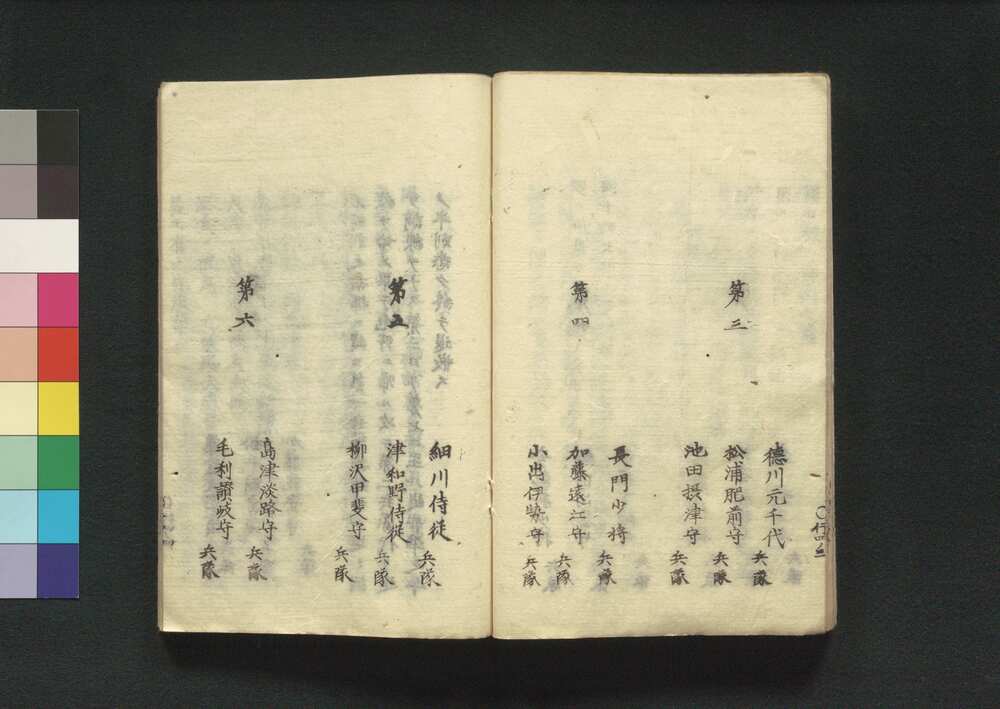 第三
德川元千代 兵隊
松浦肥前守 兵隊
池田摂津守 兵隊
第四
長門少将 兵隊
加藤遠江守 兵隊
小出伊勢守 兵隊
第五
細川侍従 兵隊
津和野侍従 兵隊
柳沢甲斐守 兵隊
第六
島津淡路守 兵隊
毛利讃岐守 兵隊